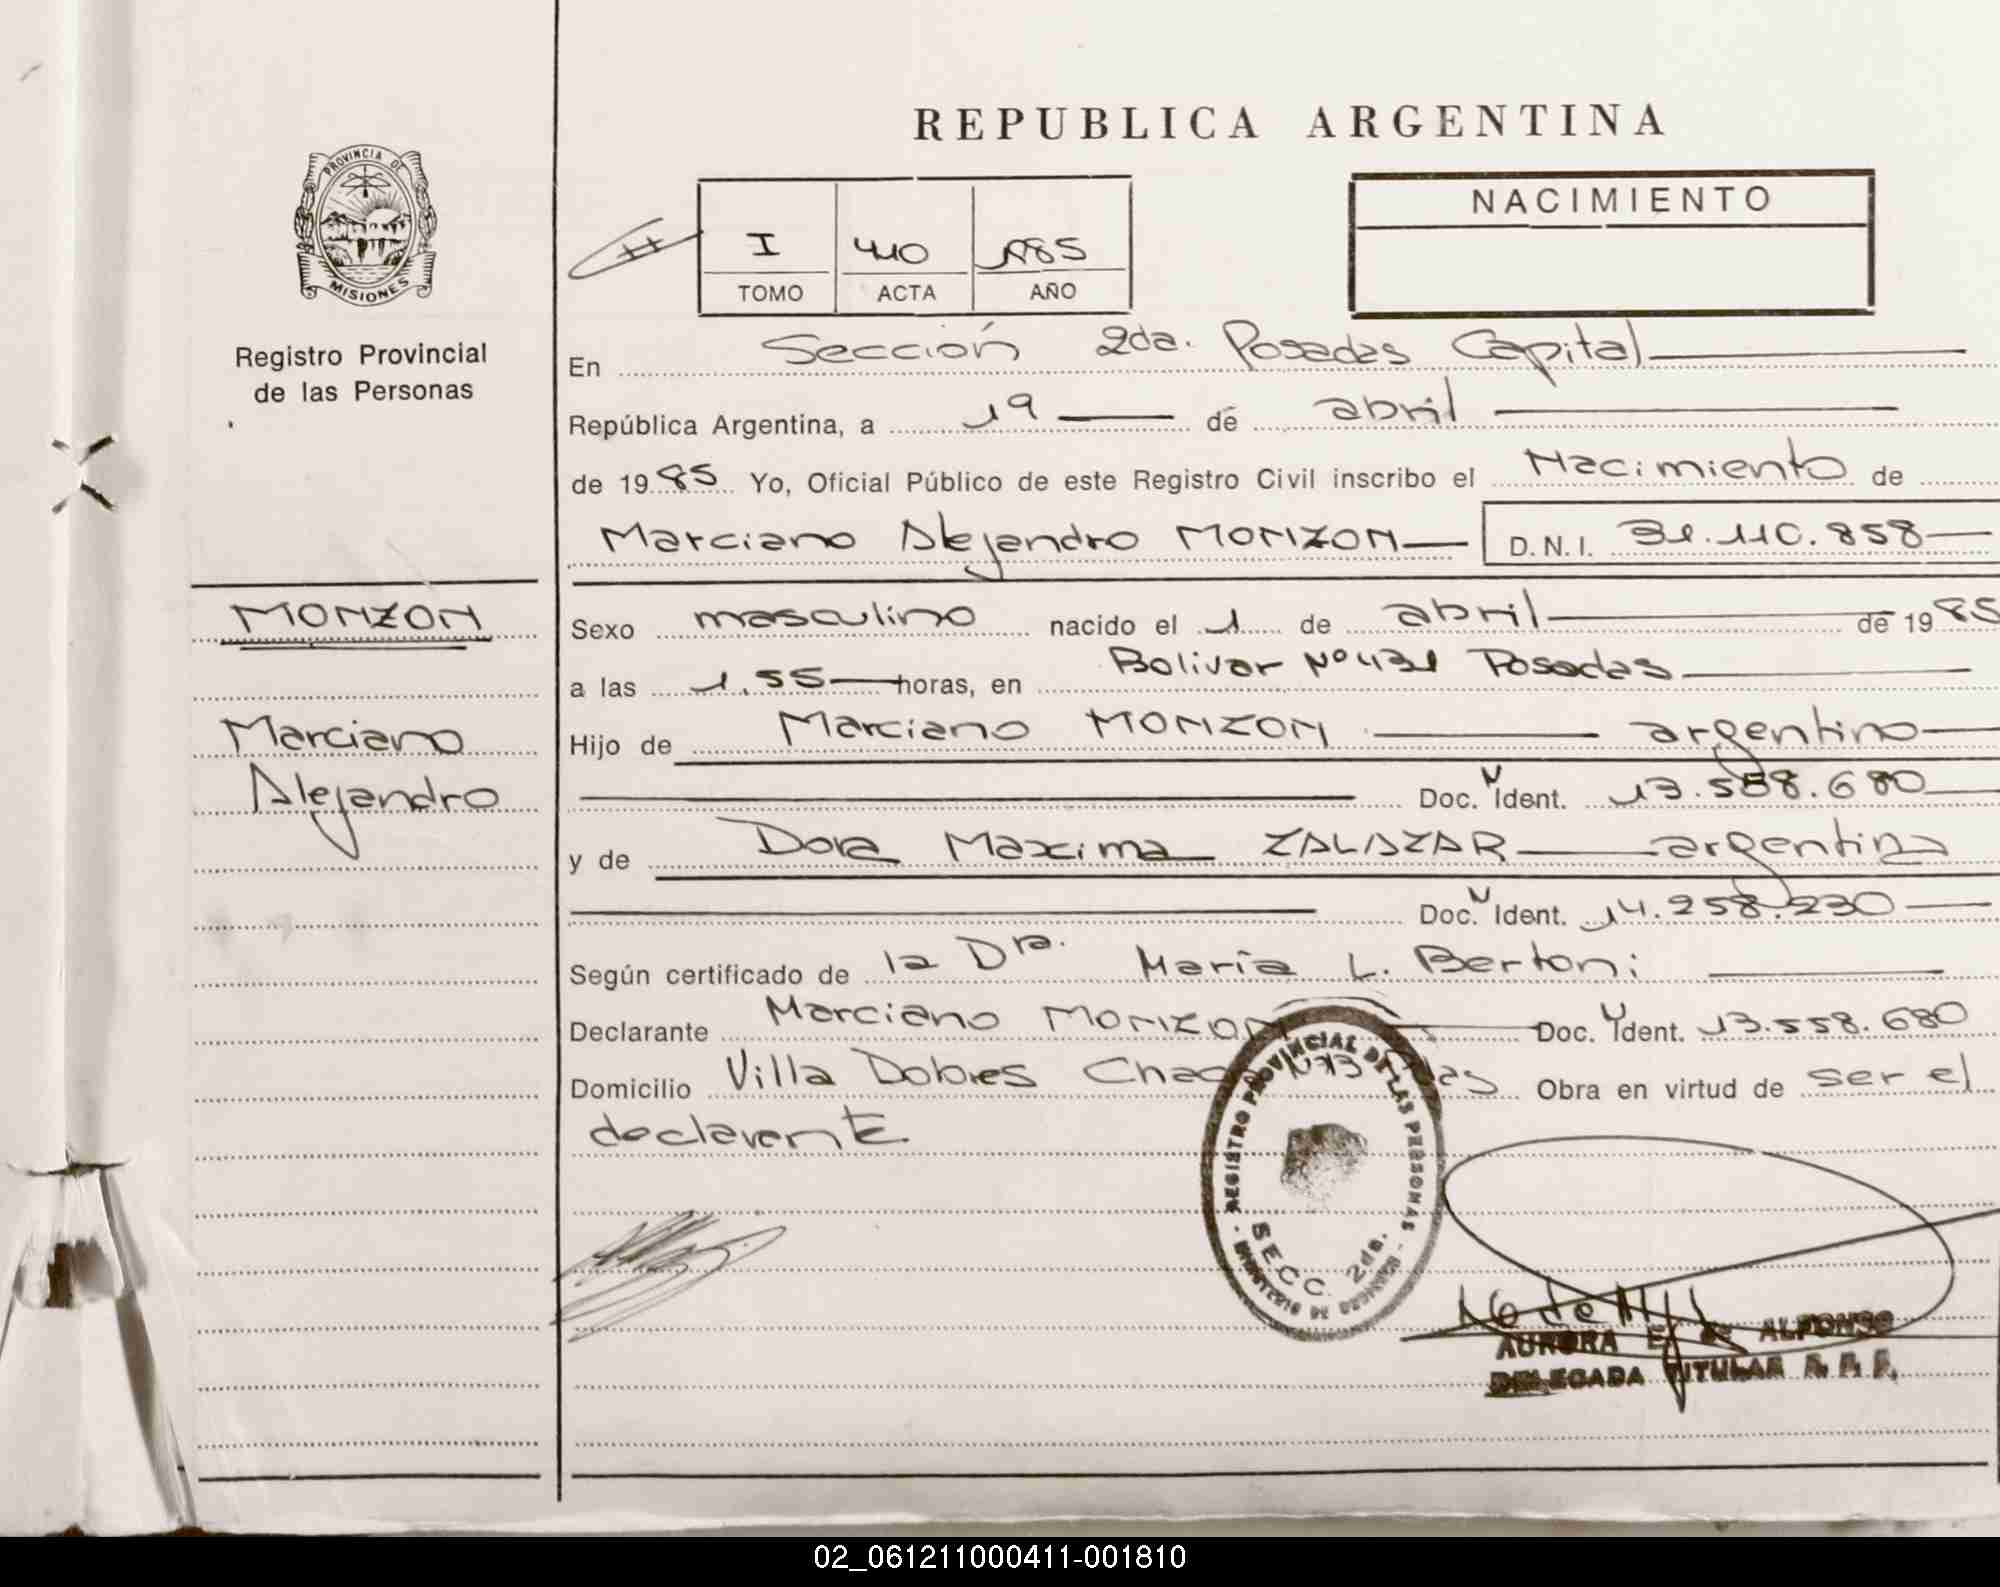 REPUBLICA ARGENTINA
PROVINCIA DE
MISIONES
Registro Provincial
de las Personas
I 410 1985
TOMO ACTA AÑO
NACIMIENTO
En Sección 2da. Posadas Capital
República Argentina, a 19 de abril
de 1985 Yo, Oficial Público de este Registro Civil inscribo el Nacimiento de
Marciano Alejandro MONZON D.N.I. 31.110.858
MONZON
Marciano
Alejandro
Sexo masculino nacido el 1 de abril de 1985
a las 1.55 horas, en Bolivar Nº 431 Posadas
Hijo de Marciano MONZON argentino
Doc. Ident. 13.558.680
y de Dora Maxima ZALAZAR argentina
Doc. Ident. 14.258.230
Según certificado de la Dra. María L. Bertoni
Declarante Marciano MONZON Doc. Ident. 13.558.680
Domicilio Villa Dolores Obra en virtud de ser el
declarante
REGISTRO PROVINCIAL DE LAS PERSONAS
SECC. 2da.
AURORA E. de ALFONSO
DELEGADA TITULAR R. P. P.
02_061211000411-001810